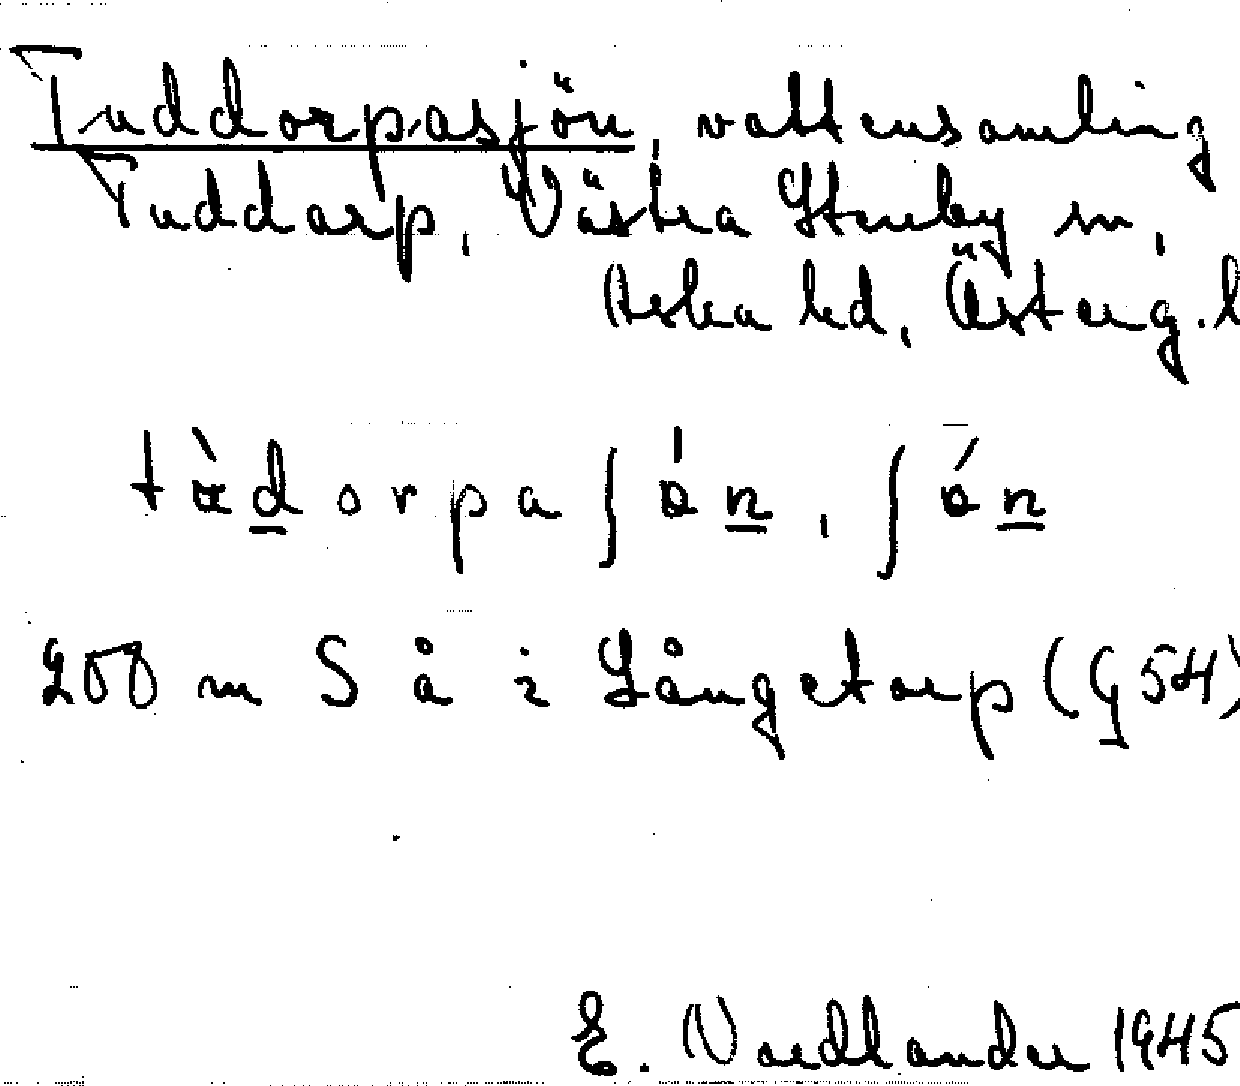 Tuddorpasjön, vattensamling
Tuddarp, Västra Stenby sn,
Aska hd, Österg. l
tàdorpaʃȯn, ʃón
200 m S å i Långetorp (G54)
E. Nordlander 1945